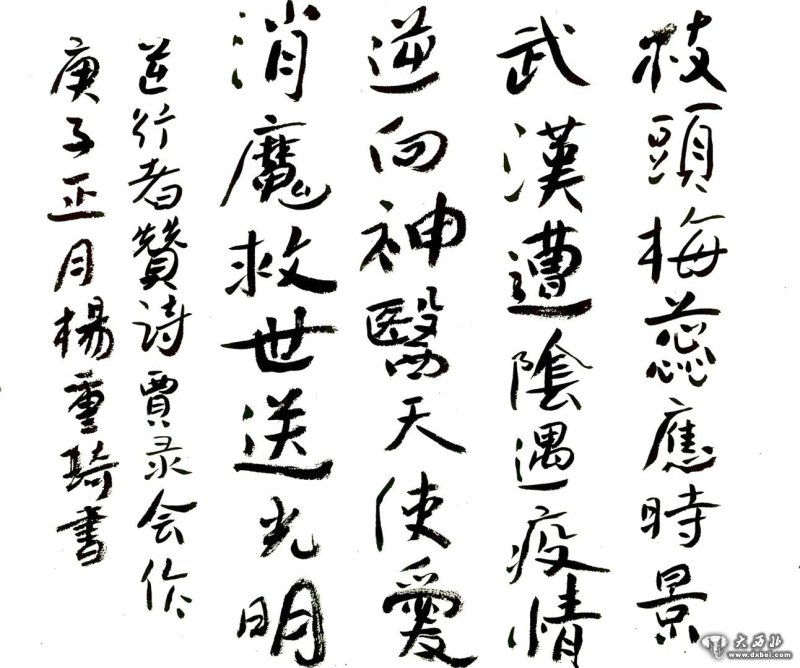 枝頭梅蕊應時景
武漢遭陰遇疫情
逆向神醫天使愛
消魔救世送光明
逆行者贊诗賈录会作
庚子正月楊重琦書
大西北
www.dxbei.com